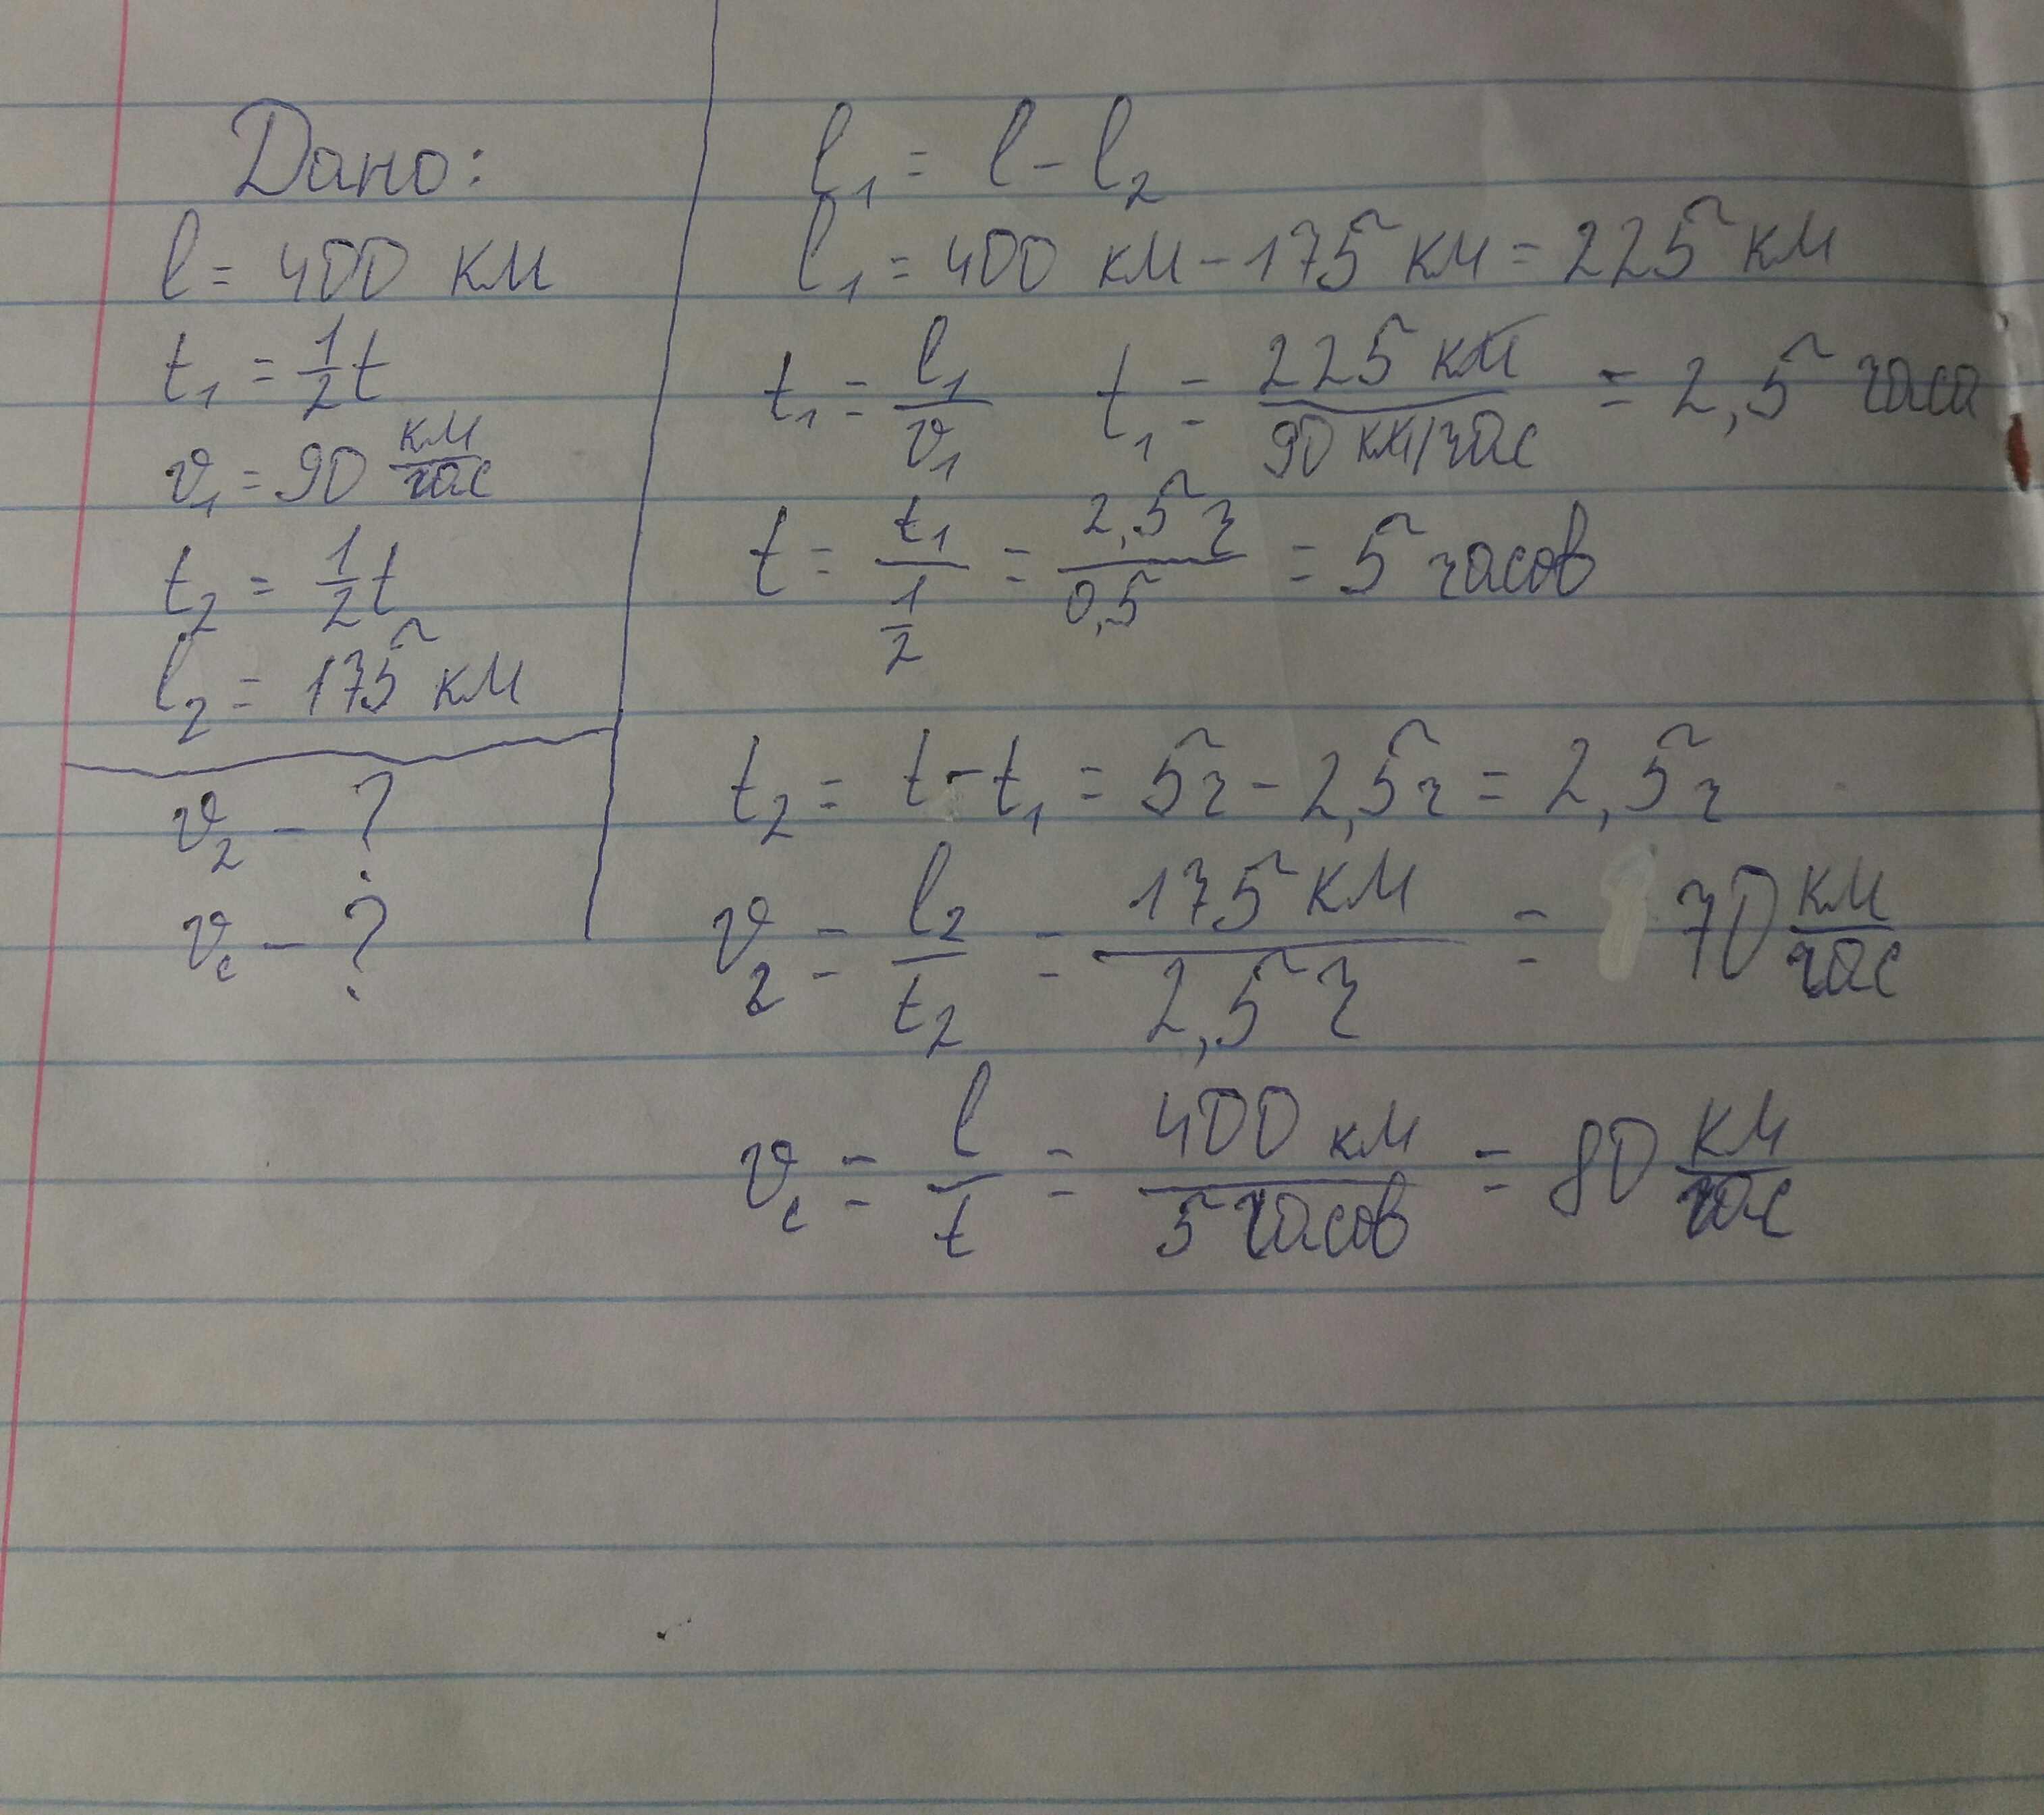 Дано:
l = 400 км
t₁ = 1/2 t
v₁ = 90 км/час
t₂ = 1/2 t
l₂ = 175 км
v₂ - ?
vс - ?
l₁ = l - l₂
l₁ = 400 км - 175 км = 225 км
t₁ = l₁/v₁ t₁ = 225 км / 90 км/час = 2,5 часа
t = t₁ / 1/2 = 2,5 ч / 0,5 = 5 часов
t₂ = t - t₁ = 5ч - 2,5ч = 2,5ч
v₂ = l₂/t₂ = 175 км / 2,5 ч = 70 км/час
vс = l/t = 400 км / 5 часов = 80 км/час